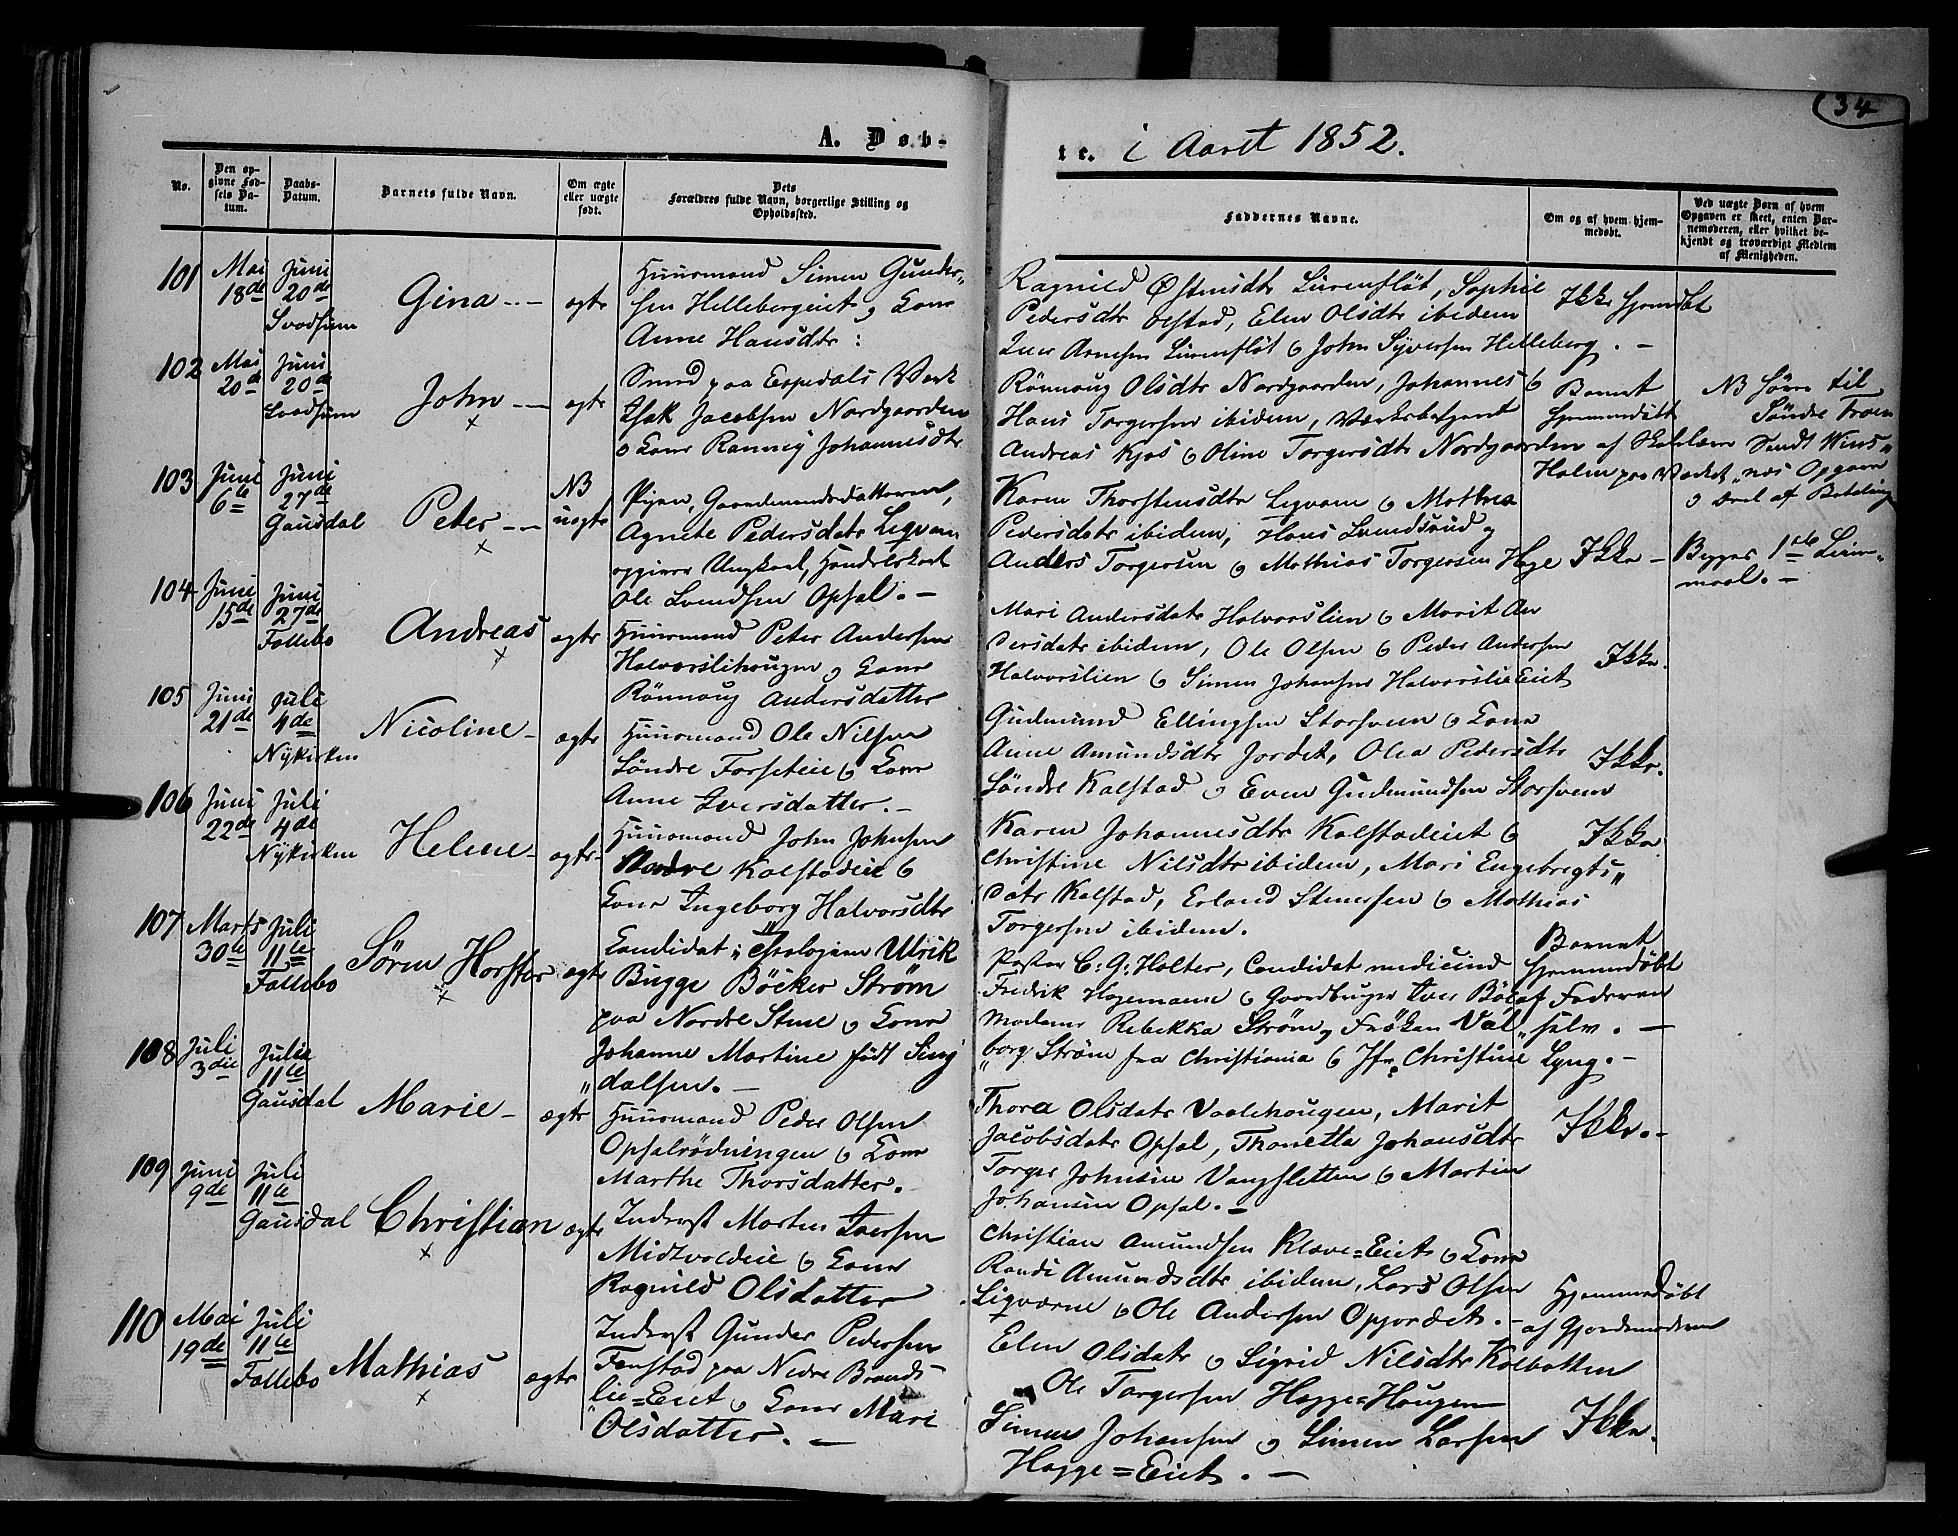 34
A. Døb-
te. i Aaret 1852.
No.
Den op-
givne Fød-
sels Da-
tum.
Daabs-
Datum.
Barnets fulde Navn.
Om ægte
eller uægte
født.
Dets
Forældres fulde Navn, borgerlige Stilling og
Opholdssted.
Faddernes Navne.
Om og af hvem hjem-
medøbt.
Ved uægte Børn af hvem
Opgaven er skeet, enten Bar-
nemoderen, eller hvilket be-
kjendt og troværdigt Medlem
af Menigheden.
101
Mai
18de
Juni
20de
Svodsum
Gina
ægte
Huusmand Simen Gunder-
sen Hellebergeiet og Kone
Anne Hansdtr:
Ragnild Østensdtr Lürenflöt, Sophie
Pedersdtr Olstad, Elen Olsdtr ibidem
Iver Arnesen Lürenflöt & John Syversen Helleberg. -
Ikke hjemdbt
102
Mai
20de
Juni
20de
Svodsum
John
ægte
Smed paa Espedals Værk
Isak Jacobsen Nordgaarden
& Kone Ranney Johannesdtr
Rönnaug Olsdtr Nordgaarden, Johannes &
Hans Torgersen ibidem, Værksbetjent
Andreas Kjos & Oline Torgersdtr Nordgaarden
Barnet
hjemmedöbt
af Skolelærer
Holen paa Værket
103
Juni
6te
Juni
27de
Gausdal
Peter
NB
uægte
Pigen, Gaardmandsdatteren,
Agnete Pedersdatr Legvam
opgiver Ungkarl, Handelskarl
Ole Svendsen Opsal. -
Karen Thorstensdtr Legvam & Mathea
Pedersdatr ibidem, Hans Svendsrud og
Anders Torgersen & Mathias Torgersen Hage
Ikke -
NB
til
Söndre
Opgave
Begges 1ste Leier-
maal. -
104
Juni
15de
Juni
27de
Follebo
Andreas
ægte
Huusmand Peter Andersen
Halvorslihougen og Kone
Rönnoug Andersdatter
Mari Andersdatr Halvorslien & Marit An
dersdatr ibidem, Ole Olsen & Peder Andersen
Halvorslien & Simen Johansen Halvorslieeiet
Ikke.
105
Juni
21de
Juli
4de
Nykirken
Nicoline
ægte
Huusmand Ole Nilsen
Söndre Forseteie & Kone
Anne Iversdatter. -
Gudmund Ellingsen Storsveen & Kone
Anne Amundsdtr Jordet, Olea Pedersdtr
Söndre Kalstad & Even Gudmundsen Storsveen
Ikke.
106
Juni
22de
Juli
4de
Nykirken
Helene
ægte
Huusmand John Johnsen
Nordre Kalstadeie &
Kone Ingeborg Halvorsdtr
Karen Johannesdtr Kalstadeiet &
Christine Nilsdtr ibidem, Mari Engebregts„
datr Kalstad, Erland Stenersen & Mathias
Torgersen ibidem.
Ikke
107
Marts
30te
Juli
11te
Follebo
Sören Horster
ægte
Candidat i Theologien Ulrik
Bugge Böcker Ström
paa Nordre Stene & Kone
Johanne Martine född Sing
„dalsen. -
Pastor C: G: Holter, Candidat medicine
Fredrik Hagemann & Gaardbruger Iver Böe
Madame Rebekka Ström og Frøken Val„
„borg Ström fra Christiania & Jfr. Christine Lyng. -
Barnet
hjemmedöbt
af Faderen
selv. -
108
Juli
3die
Julie
11te
Gausdal
Marie
ægte
Huusmand Peder Olsen
Opsalrödningen & Kone
Marthe Thorsdatter.
Thora Olsdatr Vaalehougen, Marit
Jacobsdatr Opsal, Thonetta Johansdtr
Torger Johnsen Vangsletten & Martin
Johansen Opsal. -
Ikke. -
109
Juni
9de
Juli
11te
Gausdal
Christian
ægte
Inderst Morten Iversen
Midtvoldeie & Kone
Ragnild Olsdatter
Christian Amundsen Kleve=Eiet & Kone
Randi Amundsdtr ibidem, Lars Olsen
Ligværne & Ole Andersen Opjordet. -
Hjemmedöbt
af Gjordemoderen
110
Mai
19de
Juli
11te
Follebo
Mathias
ægte
Inderst Gunder Pedersen
Fonstad paa Nedre Brand
lie=Eiet & Kone Mari
Olsdatter. -
Elen Olsdatr & Sigrid Nilsdtr Kolbotten
Ole Torgersen Hagge=Hougen
Simen Johansen & Simen Larsen
Hagge=Eiet. -
Ikke.